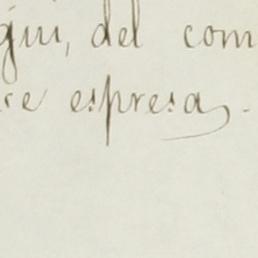 gui, del com
re espresa.